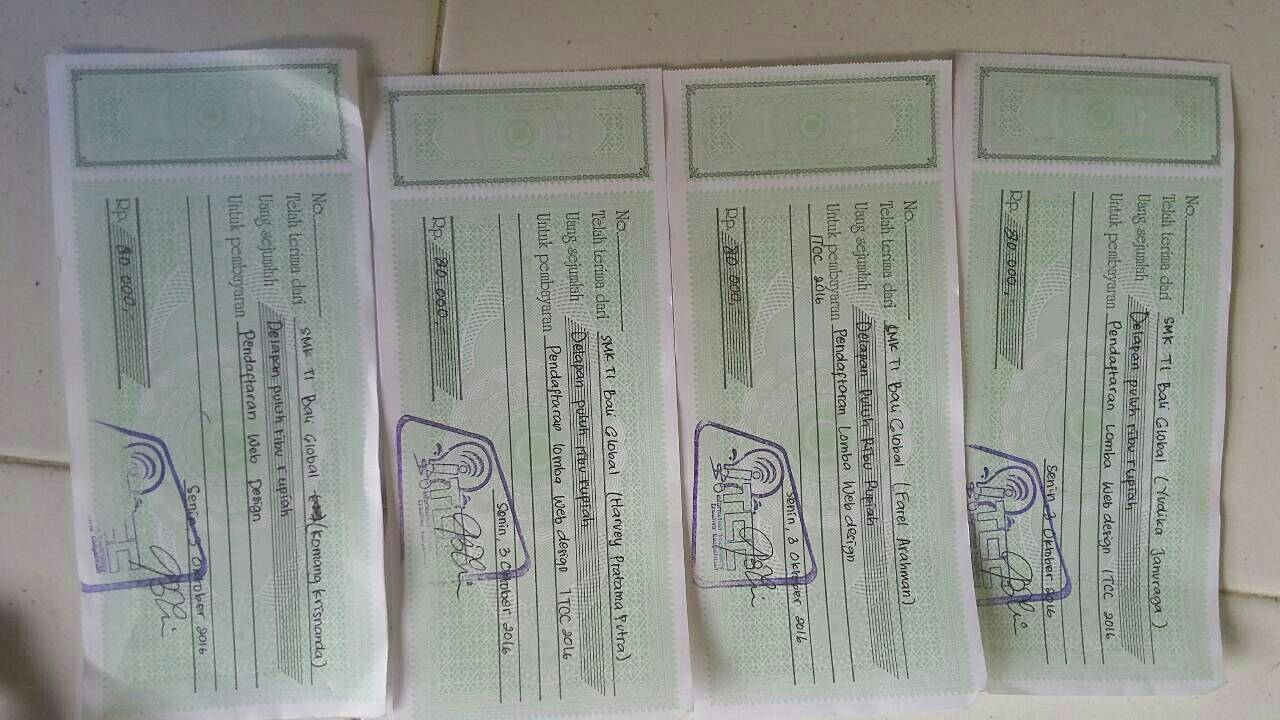 No.
Telah terima dari SMK TI Bali Global (Komang Krisnanda)
Uang sejumlah Delapan puluh ribu rupiah
Untuk pembayaran Pendaftaran Web Design
Senin 3 Oktober 2016
Rp. 80.000,
No.
Telah terima dari SMK TI Bali Global (Harvey Pratama Putra)
Uang sejumlah Delapan puluh ribu rupiah
Untuk pembayaran Pendaftaran lomba Web design ITCC 2016
Senin, 3 Oktober 2016
Rp. 80.000,
No.
Telah terima dari SMK TI Bali Global (Farel Arahman)
Uang sejumlah Delapan Puluh Ribu Rupiah
Untuk pembayaran Pendaftaran Lomba Web design
ITCC 2016
Senin, 3 Oktober 2016
Rp. 80.000,
No.
Telah terima dari SMK TI Bali Global (Yudika Januraga)
Uang sejumlah Delapan puluh ribu rupiah
Untuk pembayaran Pendaftaran Lomba Web design ITCC 2016
Senin 3 Oktober 2016
Rp. 80.000,